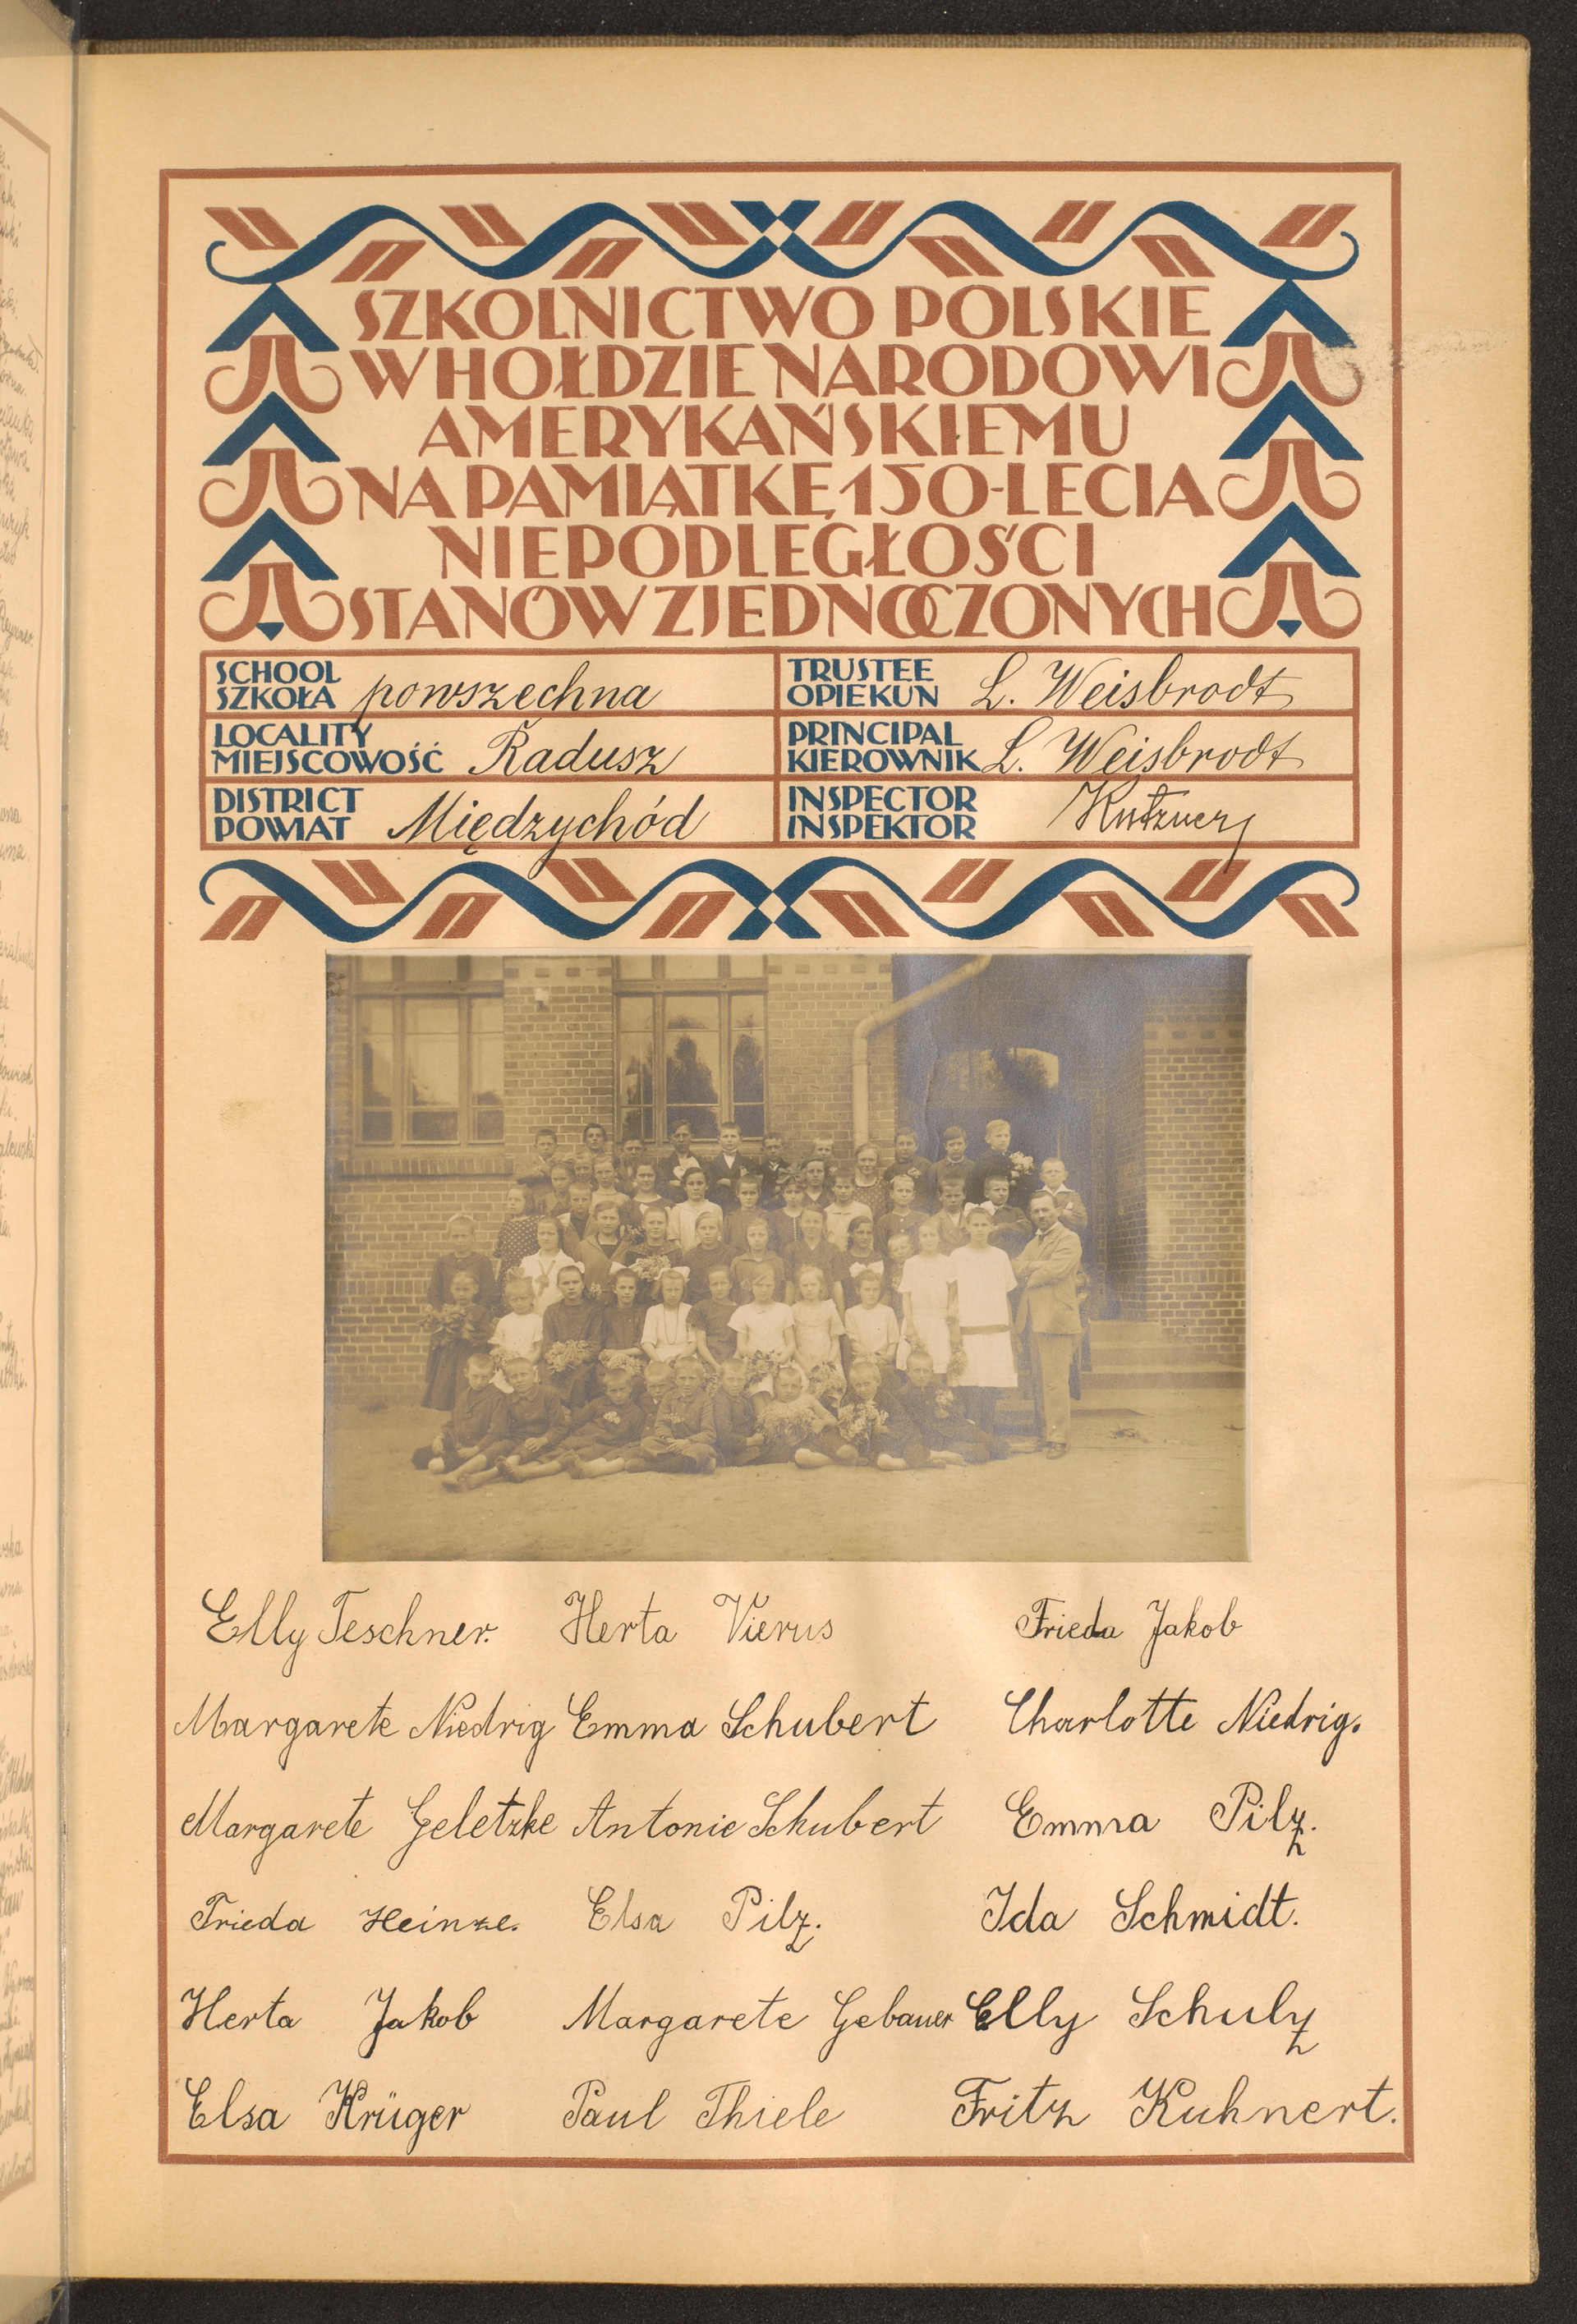 SZKOLNICTWO POLSKIE
W HOŁDZIE NARODOWI
AMERYKAŃSKIEMU
NA PAMIĄTKĘ 150-LECIA
NIEPODLEGŁOŚCI
STANÓW ZJEDNOCZONYCH
SCHOOL
SZKOŁA powszechna
TRUSTEE
OPIEKUN L. Weisbrodt
LOCALITY
MIEJSCOWOŚĆ Radusz
PRINCIPAL
KIEROWNIK L. Weisbrodt
DISTRICT
POWIAT Międzychód
INSPECTOR
INSPEKTOR
Elly Teschner. Herta Vierus Frieda Jakob
Margarete Niedrig Emma Schubert Charlotte Niedrig.
Margarete Geletzke Antonie Schubert Emma Pilz.
Frieda Heinze. Elsa Pilz. Ida Schmidt.
Herta Jakob Margarete Gebauer Elly Schulz
Elsa Krüger Paul Thiele Fritz Kuhnert.